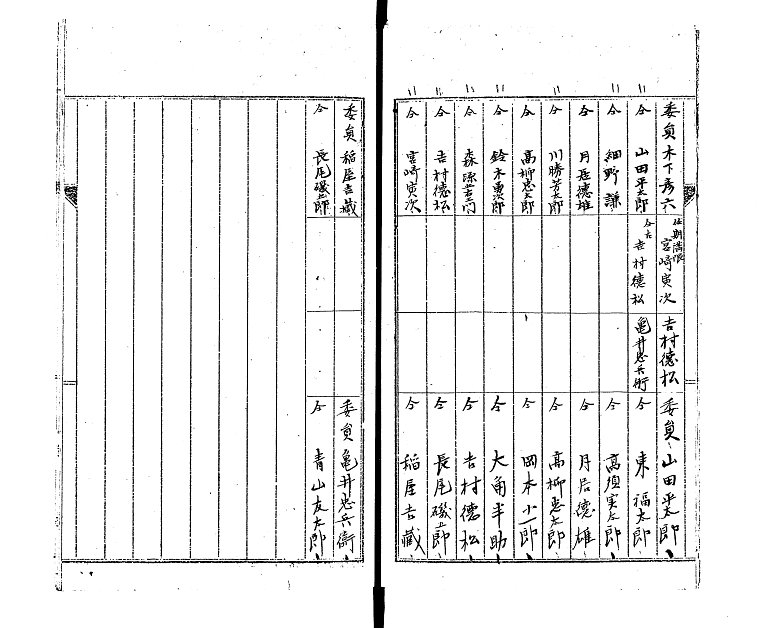 委員 木下彦六
仝 山田平太郎
仝 細野謙
仝 月居德雄
仝 川勝芳太郎
仝 高柳忠太郎
仝 鈴木勇郎
仝
仝 吉村德松
仝 宮崎寅次
任期満限
宮崎寅次
仝上
吉村德松
吉村德松
亀井忠兵衛
委員 山田平太郎
仝 東福太郎
仝 高須実太郎
仝 月居德雄
仝 高柳忠太郎
仝 岡本小一郎
仝 大角半助
仝 吉村德松
仝 長尾磯五郎
仝 稲屋吉藏
委員 稲屋吉藏
仝 長尾磯五郎
委員 亀井忠兵衛
仝 青山友太郎